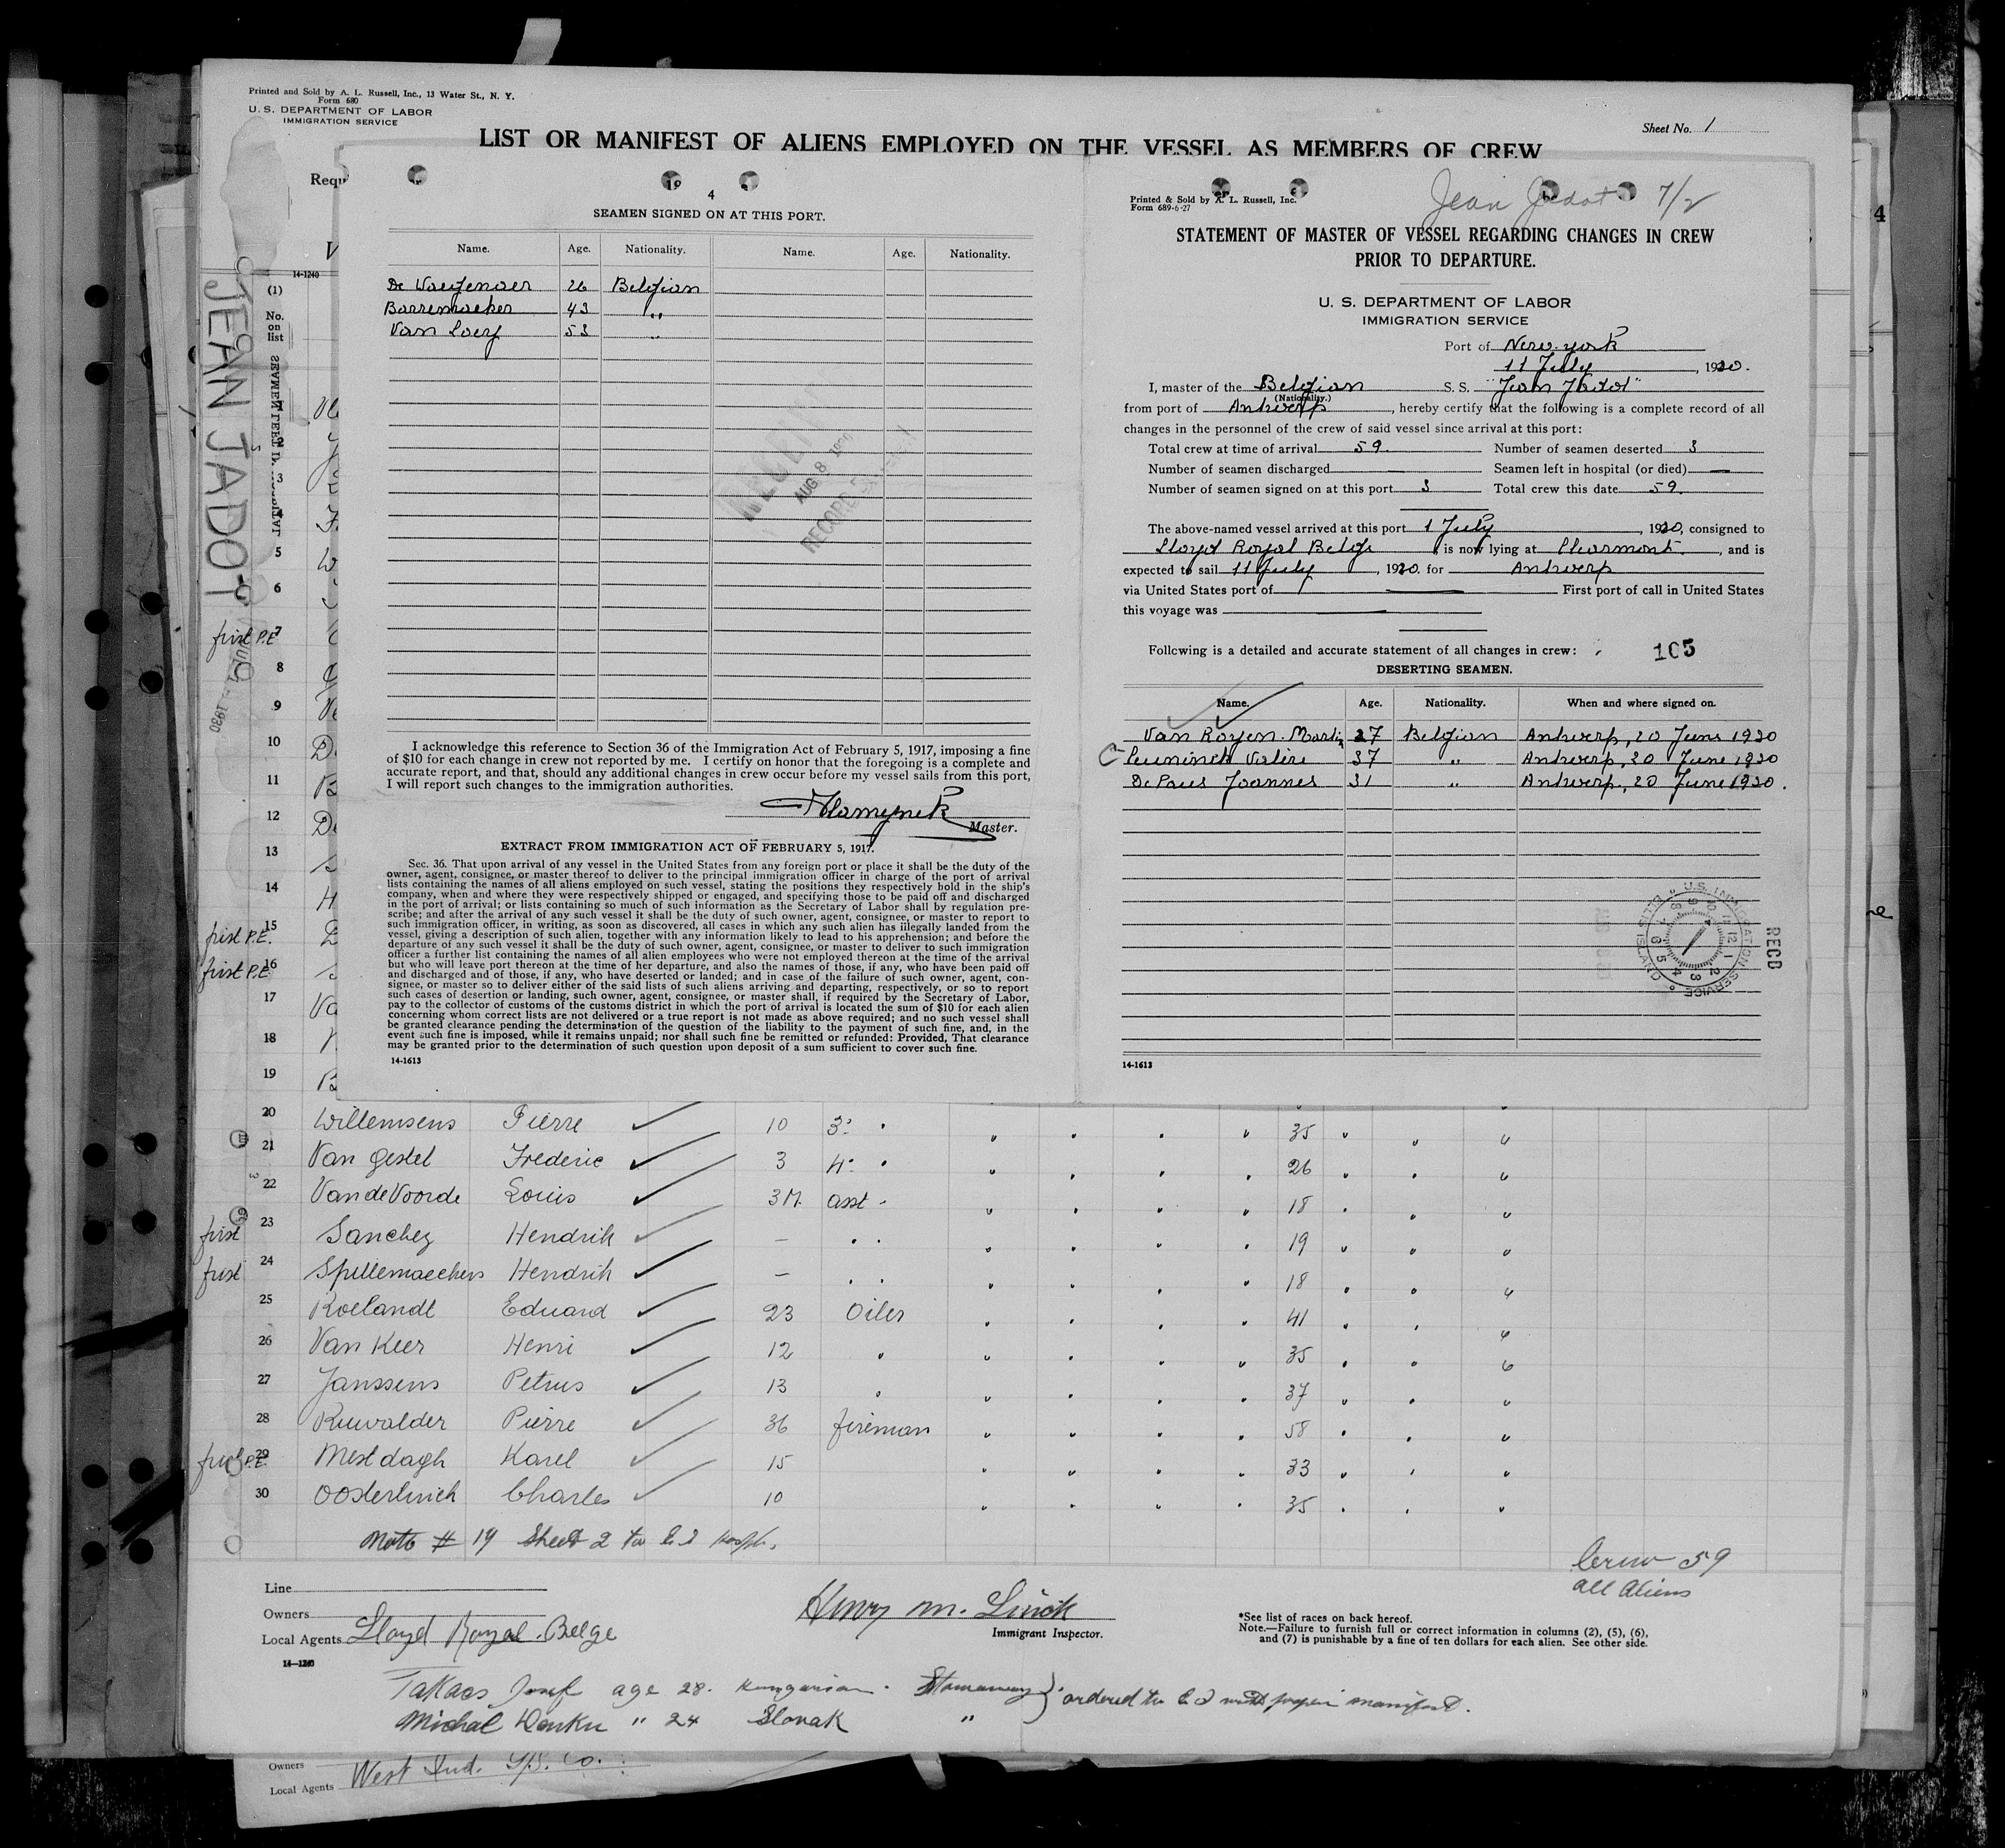 Printed and Sold by A. L. Russell, Inc., 13 Water St., N. Y.
Form 680
U. S. DEPARTMENT OF LABOR
IMMIGRATION SERVICE
Sheet No. 1
LIST OR MANIFEST OF ALIENS EMPLOYED ON THE VESSEL AS MEMBERS OF CREW
Requ
14-1240
(1)
No.
on
list
JEAN JADOT
4
SEAMEN SIGNED ON AT THIS PORT.
Name. Age. Nationality. Name. Age. Nationality.
De Waegenaer 26 Belgian
Barremaeker 43 "
Van Loey 53 "
AUG 8 1930
I acknowledge this reference to Section 36 of the Immigration Act of February 5, 1917, imposing a fine
of $10 for each change in crew not reported by me. I certify on honor that the foregoing is a complete and
accurate report, and that, should any additional changes in crew occur before my vessel sails from this port,
I will report such changes to the immigration authorities.
Master.
EXTRACT FROM IMMIGRATION ACT OF FEBRUARY 5, 1917.
Sec. 36. That upon arrival of any vessel in the United States from any foreign port or place it shall be the duty of the
owner, agent, consignee, or master thereof to deliver to the principal immigration officer in charge of the port of arrival
lists containing the names of all aliens employed on such vessel, stating the positions they respectively hold in the ship's
company, when and where they were respectively shipped or engaged, and specifying those to be paid off and discharged
in the port of arrival; or lists containing so much of such information as the Secretary of Labor shall by regulation pre-
scribe; and after the arrival of any such vessel it shall be the duty of such owner, agent, consignee, or master to report to
such immigration officer, in writing, as soon as discovered, all cases in which any such alien has illegally landed from the
vessel, giving a description of such alien, together with any information likely to lead to his apprehension; and before the
departure of any such vessel it shall be the duty of such owner, agent, consignee, or master to deliver to such immigration
officer a further list containing the names of all alien employees who were not employed thereon at the time of the arrival
but who will leave port thereon at the time of her departure, and also the names of those, if any, who have been paid off
and discharged and of those, if any, who have deserted or landed; and in case of the failure of such owner, agent, con-
signee, or master so to deliver either of the said lists of such aliens arriving and departing, respectively, or so to report
such cases of desertion or landing, such owner, agent, consignee, or master shall, if required by the Secretary of Labor,
pay to the collector of customs of the customs district in which the port of arrival is located the sum of $10 for each alien
concerning whom correct lists are not delivered or a true report is not made as above required; and no such vessel shall
be granted clearance pending the determination of the question of the liability to the payment of such fine, and, in the
event such fine is imposed, while it remains unpaid; nor shall such fine be remitted or refunded: Provided, That clearance
may be granted prior to the determination of such question upon deposit of a sum sufficient to cover such fine.
14-1613
Jean Jadot 7/2
Printed & Sold by A. L. Russell, Inc.
Form 689-6-27
STATEMENT OF MASTER OF VESSEL REGARDING CHANGES IN CREW
PRIOR TO DEPARTURE.
U. S. DEPARTMENT OF LABOR
IMMIGRATION SERVICE
Port of New-york
11 July, 1930.
I, master of the Belgian S. S. "Jean Jadot"
(Nationality.)
from port of Antwerp, hereby certify that the following is a complete record of all
changes in the personnel of the crew of said vessel since arrival at this port:
Total crew at time of arrival 59. Number of seamen deserted 3
Number of seamen discharged — Seamen left in hospital (or died) —
Number of seamen signed on at this port 3 Total crew this date 59.
The above-named vessel arrived at this port 1 July, 1930, consigned to
Lloyd Royal Belge is now lying at Clearmont, and is
expected to sail 11 July, 1930. for Antwerp
via United States port of — First port of call in United States
this voyage was —
Following is a detailed and accurate statement of all changes in crew:
105
DESERTING SEAMEN.
Name. Age. Nationality. When and where signed on.
Van Royen. Martin 27 Belgian Antwerp, 20 June 1930
Ceuninck Valère 37 " Antwerp, 20 June 1930
De Paus Joannes 31 " Antwerp, 20 June 1930.
U.S. IMMIGRATION SERVICE ELLIS ISLAND
RECD
14-1613
3
4
5
6
first P.E. 7
8
9
10
11
12
13
14
first P.E. 15
first P.E. 16
17
18
19
20 Willemsens Pierre 10 3: " " " " " 35 " " "
21 Van Gestel Frederic 3 4: " " " " " 26 " " "
22 Van de Voorde Louis 3M. asst " " " " " 18 " " "
first 23 Sanchez Hendrik — " " " " " " 19 " " "
first 24 Spillemaeckers Hendrik — " " " " " 18 " " "
25 Roelandt Eduard 23 Oiler " " " " 41 " " "
26 Van Keer Henri 12 " " " " " 35 " " "
27 Janssens Petrus 13 " " " " " 37 " " "
28 Ruwalder Pierre 36 fireman " " " " 58 " " "
first P.E. 29 Mestdagh Karel 15 " " " " 33 " " "
30 Oosterlinck Charles 10 " " " " 35 " " "
Note # 19 Sheet 2 to E I hospt.
Crew 59
all aliens
Line
Owners
Local Agents Lloyd Royal Belge
14—1240
Henry M. Linck
Immigrant Inspector.
*See list of races on back hereof.
Note.—Failure to furnish full or correct information in columns (2), (5), (6),
and (7) is punishable by a fine of ten dollars for each alien. See other side.
Takacs Josef age 28. Hungarian. Stowaway } ordered to E I with proper manifest.
Michal " 24 Slovak "
Owners
Local Agents West Ind. S/S. Co.